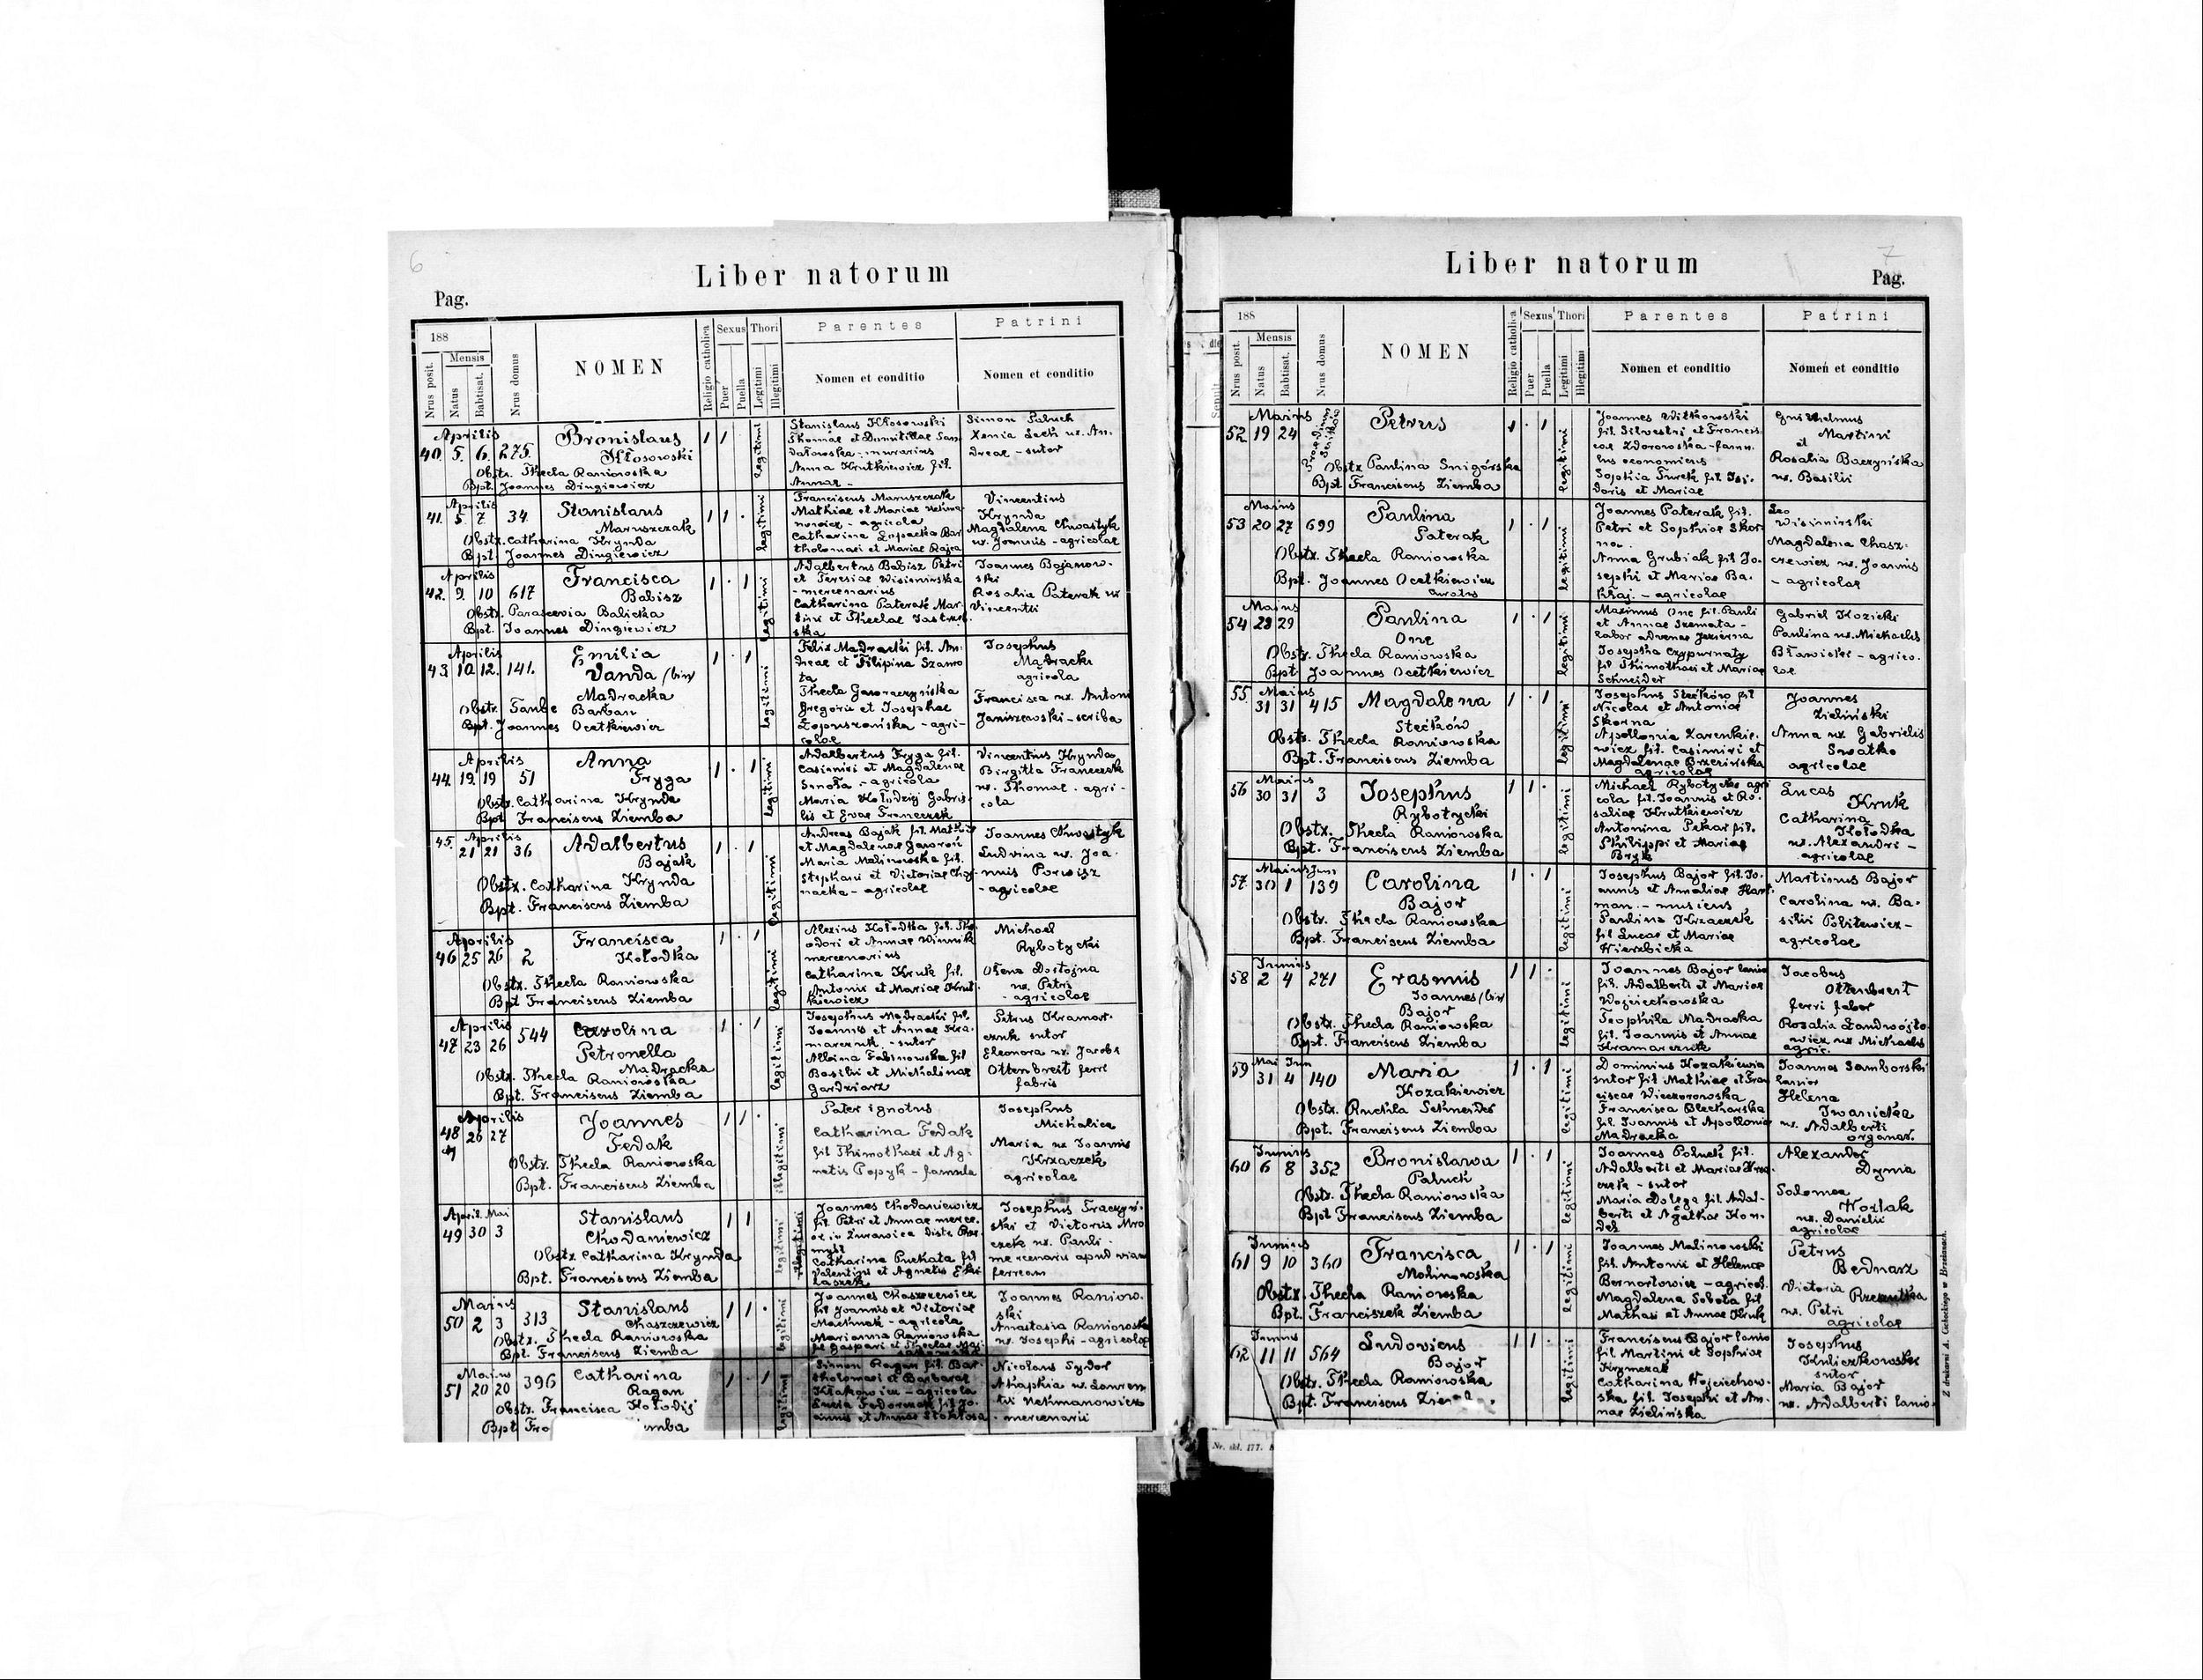 6
Liber natorum
Pag.
188
Mensis
Nrus posit.
Natus
Babtisat.
Nrus domus
NOMEN
Religio catholica
Sexus
Puer
Puella
Thori
Legitimi
Illegitimi
Parentes
Nomen et conditio
Patrini
Nomen et conditio
Aprilis
40. 5. 6. 275.
Bronislaus
Kłosowski
Obstr. Thecla Raniowska
Bpt. Joannes Dingiewicz
1 1
legitimi
Stanislaus Kłosowski
Thomae et Domitillae San
datowska - murarius
Anna Krutkiewicz fil.
Annae -
Simon Paluch
Xenia Lech ux. An-
dreae - sutor
Aprilis
41. 5. 7. 34.
Stanislaus
Maruszczak
Obstr. Catharina Hrynda
Bpt. Joannes Dingiewicz
1 1 .
legitimi
Franciscus Maruszczak
Mathiae et Mariae
- agricola
Catharina Łopacka Bar
tholomaei et Mariae Rajca
Vincentius
Hrynda
Magdalena Chwastyk
ux. Joannis - agricolae
Aprilis
42. 9. 10 617
Francisca
Babisz
Obstr. Parascevia Balicka
Bpt. Joannes Dingiewicz
1 . 1
legitimi
Adalbertus Babisz Petri
et Teresiae Wiśniowska
- mercenarius
Catharina Paterak Mar-
tini et Theclae Jastrzęb
ska
Joannes Bojanow-
ski
Rosalia Paterak ux
Vincentii
Aprilis
43 10. 12. 141.
Emilia
Vanda (bin)
Mądracka
Obstr. Taube Barban
Bpt. Joannes Ocetkiewicz
1 . 1
legitimi
Felix Mądracki fil. An-
dreae et Filipina Szamo
ta
Thecla Gawraczyńska
Gregorii et Josephae
Łopuszańska - agri-
colae
Josephus
Mądracki
agricola
Francisca ux. Antoni
Janiszewski - scriba
Aprilis
44. 19. 19 51
Anna
Fryga
Obstr. Catharina Hrynda
Bpt. Franciscus Ziemba
1 . 1
legitimi
Adalbertus Fryga fil.
Casimiri et Magdalenae
Smoła - agricola
Maria Kołodziej Gabrie-
lis et Evae Franczak
Vincentius Hrynda
Birgitta Franczak
ux. Thomae - agri-
cola
45. Aprilis
21 21 36
Adalbertus
Bajak
Obstr. Catharina Hrynda
Bpt. Franciscus Ziemba
1 . 1
legitimi
Andreas Bajak fil. Mathiae
et Magdalenae Jaworoń
Maria Malinowska fil.
Stephani et Victoriae
- agricolae
Joannes Chwastyk
Ludvina ux. Joa-
nnis Porwisz
- agricolae
Aprilis
46 25 26 2
Francisca
Kołodka
Obstr. Thecla Raniowska
Bpt Franciscus Ziemba
1 . 1
legitimi
Alexius Kołodka fil. The
odori et Annae Winnik
mercenarius
Catharina Kruk fil.
Antonii et Mariae Krut
kiewicz
Michael
Rybotycki
Ołena Dostojna
ux. Petri
- agricolae
Aprilis
47 23 26 544
Carolina
Petronella
Mądracka
Obstr. Thecla Raniowska
Bpt. Franciscus Ziemba
1 . 1
legitimi
Josephus Mądracki fil.
Joannis et Annae Kra-
marczuk - sutor
Albina Fabinowska fil
Basilii et Michalinae
Gardziarz
Petrus Kramar-
czuk sutor
Eleonora ux. Jacobi
Ottenbreit ferri
fabris
Aprilis
48 26 27
Joannes
Fedak
Obstr. Thecla Raniowska
Bpt. Franciscus Ziemba
1 1 .
illegitimi
Pater ignotus
Catharina Fedak
fil Thimothaei et Ag-
netis Popyk - famula
Josephus
Michalica
Maria ux Joannis
Krzaczek
agricolae
April. Mai
49 30 3
Stanislaus
Chodaniewicz
Obstr. Catharina Hrynda
Bpt. Franciscus Ziemba
1 1
legitimi
Joannes Chodaniewicz
fil. Petri et Annae merce.
or in Żurawica Distr. Prze-
myśl
Catharina Puchata fil
Valentini et Agnetis
Josephus Traczyń-
ski et Victoria Mro
czek ux. Pauli -
mercenarii apud viam
ferream
Maius
50 2 3 313
Stanislaus
Chaszczewicz
Obstr. Thecla Raniowska
Bpt. Franciscus Ziemba
1 1 .
legitimi
Joannes Chaszczewicz
fil Joannis et Victoriae
Machnak - agricola
Marianna Raniowska
fil Gaspari et Theclae
Joannes Raniow-
ski
Anastasia Raniowska
ux. Josephi - agricolae
Maius
51 20 20 396
Catharina
Ragan
Obstr. Francisca Kołodziej
Bpt. Fra mba
1 . 1
legitimi
Simon Ragan fil. Bar-
tholomaei et Barbarae
Krakowicz - agricola
Lucia Fedorczak fil Jo-
annis et Annae Stokłosa
Nicolaus Sydor
Ahaphia ux. Lauren
tii Hehmanowicz
- mercenarii
7
Liber natorum
Pag.
188
Mensis
Nrus posit.
Natus
Babtisat.
Nrus domus
NOMEN
Religio catholica
Sexus
Puer
Puella
Thori
Legitimi
Illegitimi
Parentes
Nomen et conditio
Patrini
Nomen et conditio
Maius
52 19 24
Petrus
Obstr Paulina Snigórska
Bpt Franciscus Ziemba
1 . 1
legitimi
Joannes Witkowski
fil. Silvestri et Francis-
cae Zdorowska - famu-
lus oeconomicus
Sophia Turek fil. Isi-
doris et Mariae
Guilhelmus
Martini
et
Rosalia Baczyńska
ux. Basilii
Maius
53 20 27 699
Paulina
Paterak
Obstr. Thecla Raniowska
Bpt. Joannes Ocetkiewicz
curatus
1 . 1
legitimi
Joannes Paterak fil.
Petri et Sophiae Skor-
na.
Anna Grubiak fil Jo-
sephi et Mariae Ba-
kaj. - agricolae
Leo
Wiśniowski
Magdalena Chasz-
czewicz ux. Joannis
- agricolae
Maius
54 28 29
Paulina
Onc
Obstr. Thecla Raniowska
Bpt Joannes Ocetkiewicz
1 . 1
legitimi
Maximus Onc fil. Pauli
et Annae Szemata -
labor advenae Jezierna
Josepha Czypurnaty
fil Thimothaei et Mariae
Schneider
Gabriel Kozicki
Paulina ux. Michaelis
Bławicki - agrico-
lae
55 Maius
31 31 415
Magdalena
Stećków
Obstr. Thecla Raniowska
Bpt. Franciscus Ziemba
1 . 1
legitimi
Josephus Stećków fil
Nicolai et Antoniae
Skorna
Apollonia Zarenkie-
wicz fil. Casimiri et
Magdalenae Brzezińska
agricolae
Joannes
Zieliński
Anna ux Gabrielis
Swatko
agricolae
Maius
56 30 31 3
Josephus
Rybotycki
Obstr. Thecla Raniowska
Bpt. Franciscus Ziemba
1 1 .
legitimi
Michael Rybotycki agri
cola fil. Joannis et Ro-
saliae Krutkiewicz
Antonina Pekar fil.
Philippi et Mariae
Bryk
Lucas
Kruk
Catharina
Kołodka
ux. Alexandri -
agricolae
Maius Juni
57. 30 1 139
Carolina
Bajor
Obstr. Thecla Raniowska
Bpt. Franciscus Ziemba
1 . 1
legitimi
Josephus Bajor fil. Jo-
annis et Amaliae Hart-
man - musicus
Paulina Krzaczek
fil Lucae et Mariae
Wierzbicka
Martinus Bajor
Carolina ux. Ba-
silii Politewicz -
agricolae
Junius
58 2 4 271
Erasmus
Joannes (bin)
Bajor
Obstr. Thecla Raniowska
Bpt. Franciscus Ziemba
1 1 .
legitimi
Joannes Bajor lanio
fil. Adalberti et Mariae
Wojciechowska
Teophila Mądracka
fil. Joannis et Annae
Kramarczuk
Jacobus
Ottenbreit
ferri faber
Rosalia Landwójto
wicz ux Michaelis
agric.
59 Mai Jun
31 4 140
Maria
Kozakiewicz
Obstr. Ruchla Schneider
Bpt. Franciscus Ziemba
1 . 1
legitimi
Dominius Kozakiewicz
sutor fil Mathiae et Fran
ciscae Wieczorowska
Francisca Blecharska
fil. Joannis et Apolloniae
Mądracka
Joannes Samborski
lanior
Helena
Iwanicka
ux. Adalberti
organar.
Junius
60 6 8 352
Bronislawa
Paluch
Obstr. Thecla Raniowska
Bpt Franciscus Ziemba
1 . 1
legitimi
Joannes Paluch fil.
Adalberti et Mariae
- sutor
Maria Dolega fil. Adal-
berti et Agathae Hon-
del
Alexander
Dymia
Salomea
Woźlak
ux. Danielii
agricolae
Junius
61 9 10 360
Francisca
Malinowska
Obstr. Thecla Raniowska
Bpt. Franciszek Ziemba
1 . 1
legitimi
Joannes Malinowski
fil. Antonii et Helenae
Bernartowicz - agricol.
Magdalena Sobota fil
Mathiae et Annae Kruk
Petrus
Bednarz
Victoria
ux. Petri
agricolae
Junius
62 11 11 564
Ludovicus
Bajor
Obstr. Thecla Raniowska
Bpt. Franciscus Zie
1 1 .
legitimi
Franciscus Bajor lanio
fil Martini et Sophiae
Krzmezak
Catharina Wojciechow-
ska fil. Josephi et An-
nae Zielińska
Josephus
Kuliczkowski
sutor
Maria Bajor
ux. Adalberti lanio.
Z drukarni A. Cichockiego w Brzeżanach.
Nr. skł. 177.